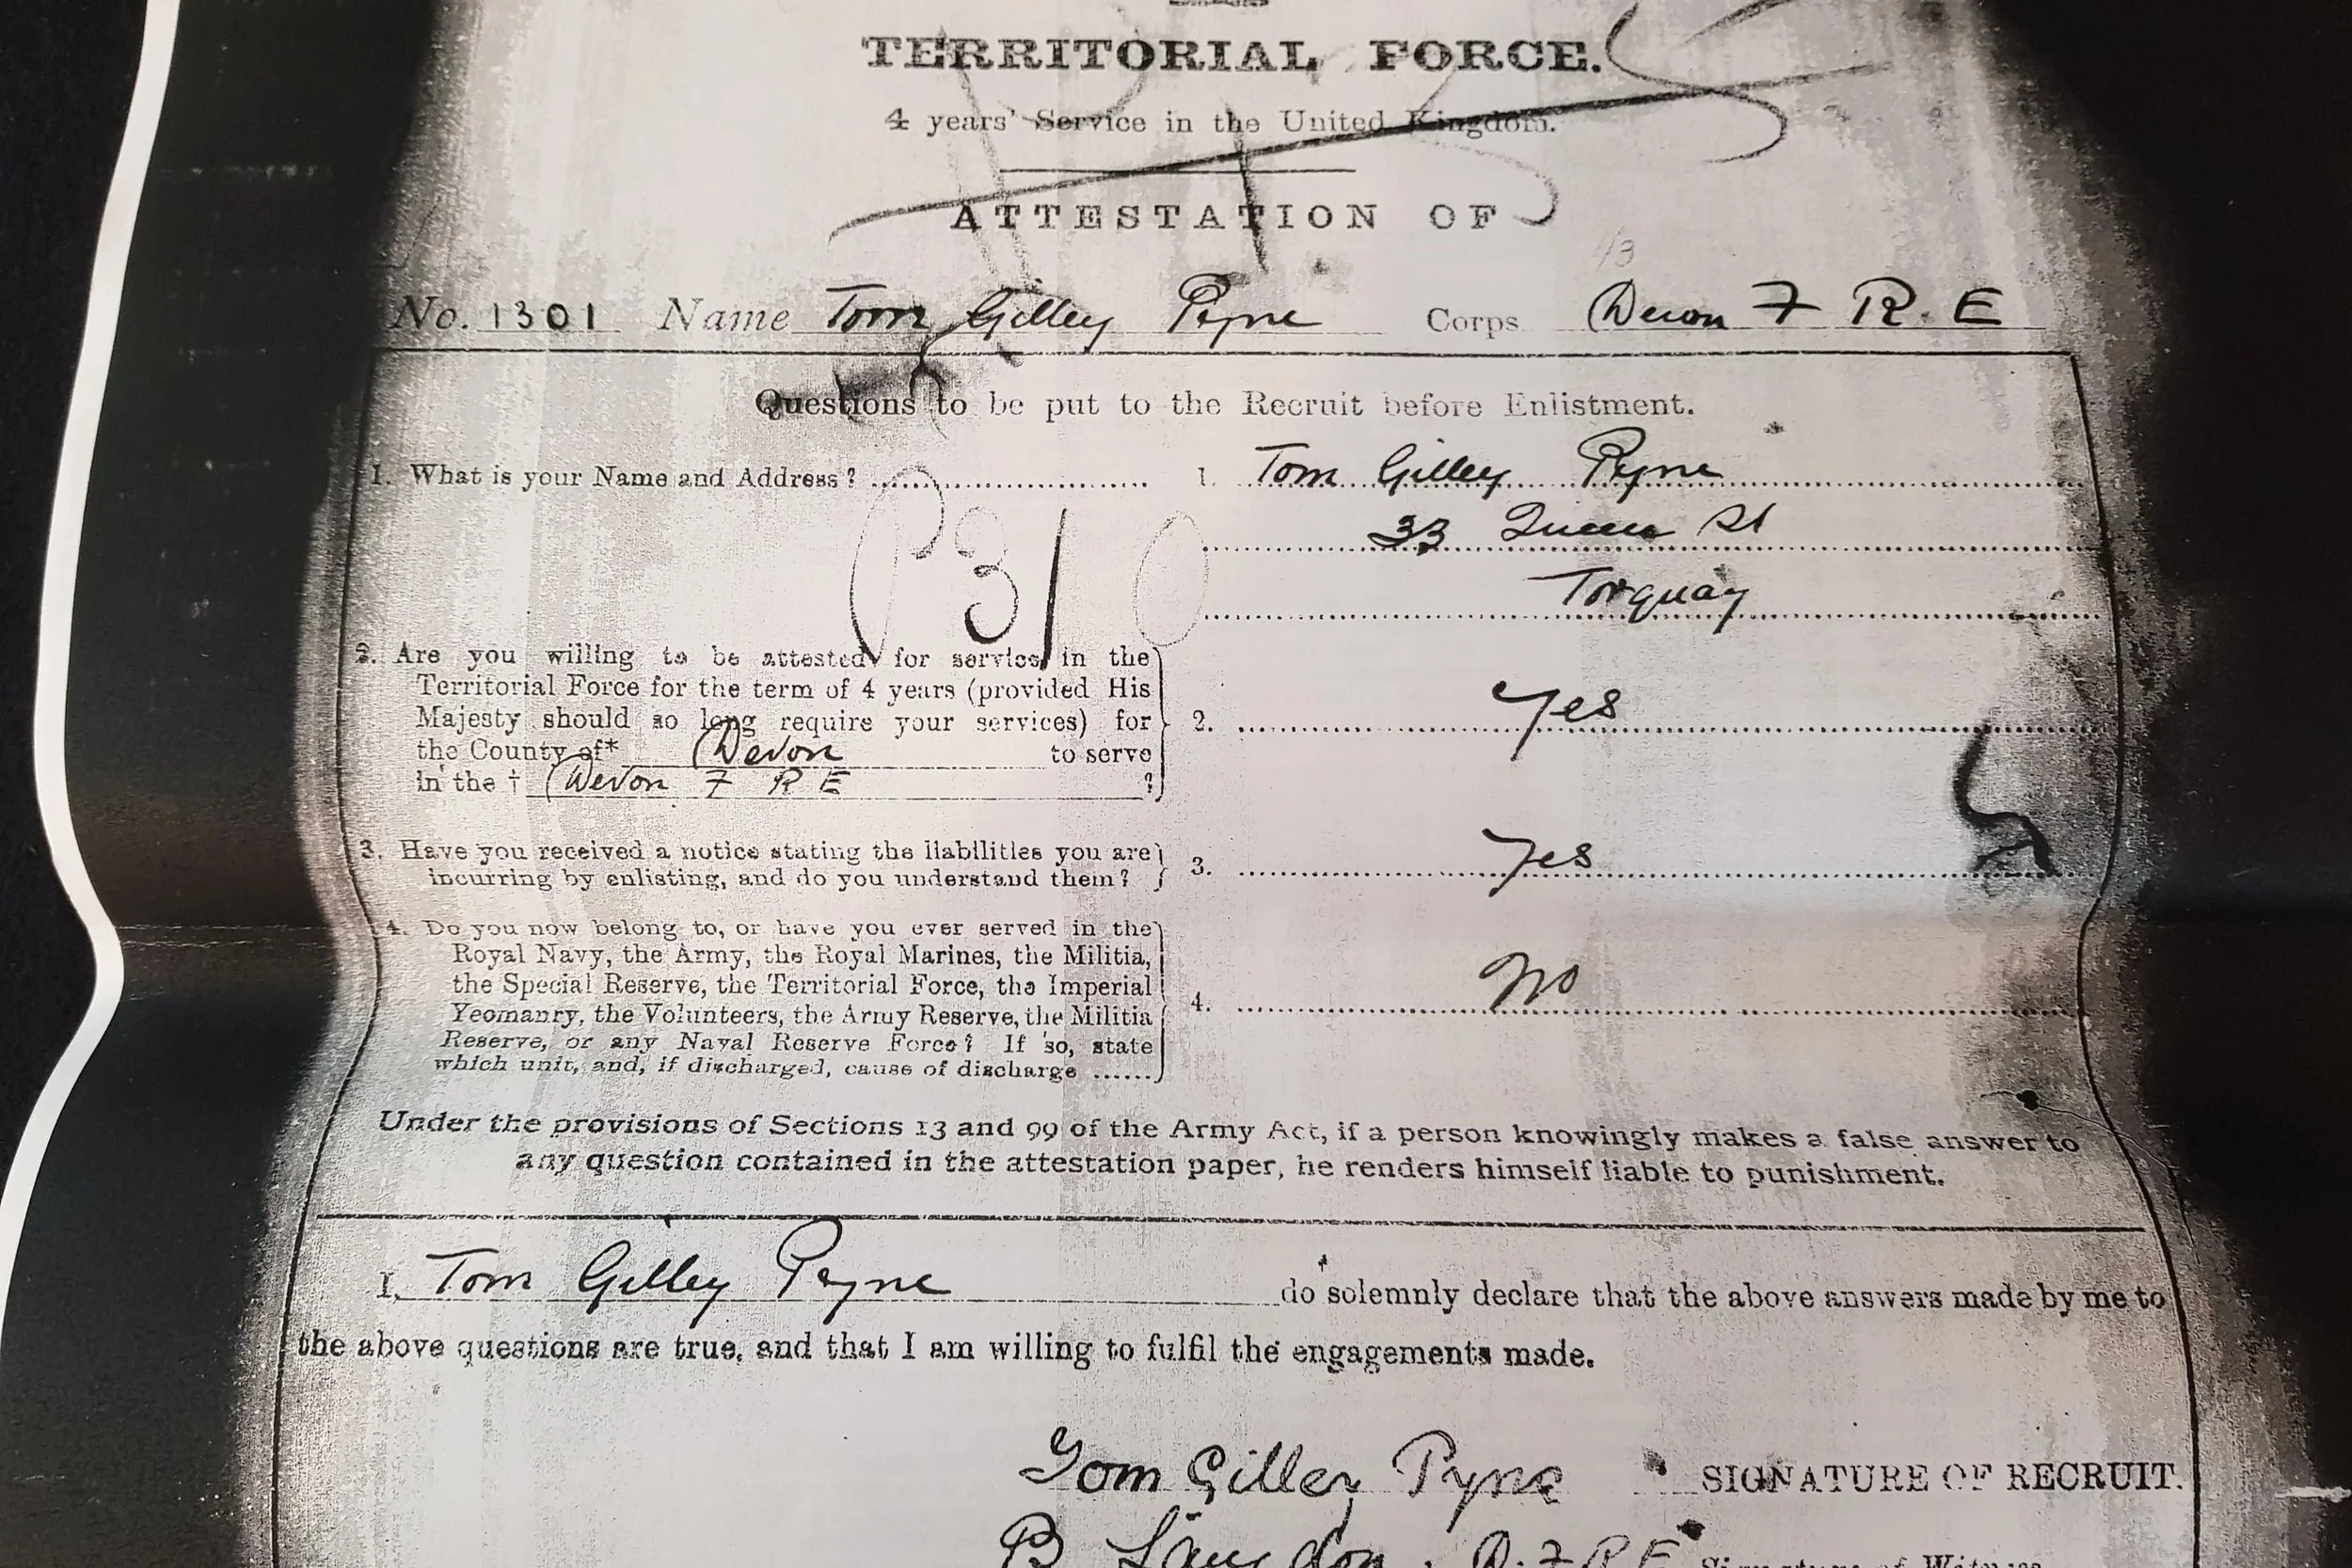 TERRITORIAL FORCE.
4 years' Service in the United Kingdom.
ATTESTATION OF
No. 1301 Name Tom Gilley Pyne Corps Devon F R. E
Questions to be put to the Recruit before Enlistment.
1. What is your Name and Address? 1. Tom Gilley Pyne
33 Queen St
Torquay
310
2. Are you willing to be attested for service in the
Territorial Force for the term of 4 years (provided His
Majesty should so long require your services) for 2. Yes
the County of* Devon to serve
in the † Devon F R E ?
3. Have you received a notice stating the liabilities you are
incurring by enlisting, and do you understand them? 3. Yes
4. Do you now belong to, or have you ever served in the
Royal Navy, the Army, the Royal Marines, the Militia,
the Special Reserve, the Territorial Force, the Imperial
Yeomanry, the Volunteers, the Army Reserve, the Militia 4. No
Reserve, or any Naval Reserve Force? If so, state
which unit, and, if discharged, cause of discharge ......
Under the provisions of Sections 13 and 99 of the Army Act, if a person knowingly makes a false answer to
any question contained in the attestation paper, he renders himself liable to punishment.
I, Tom Gilley Pyne do solemnly declare that the above answers made by me to
the above questions are true, and that I am willing to fulfil the engagements made.
Tom Gilley Pyne SIGNATURE OF RECRUIT.
B Langdon. D. F R E Signature of Witness